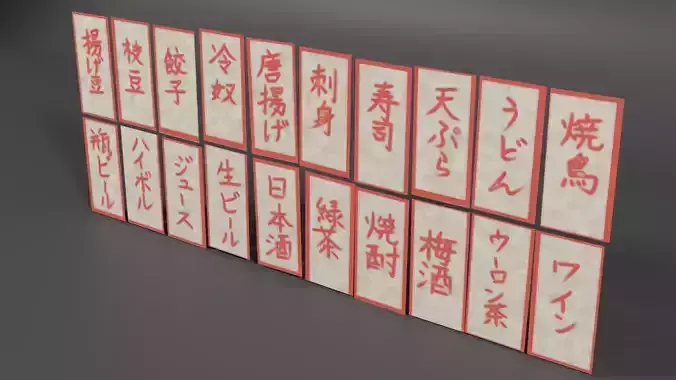 揚げ豆
枝豆
餃子
冷奴
唐揚げ
刺身
寿司
天ぷら
うどん
焼鳥
瓶ビール
ハイボル
ジュース
生ビール
日本酒
緑茶
焼酎
梅酒
ウーロン茶
ワイン